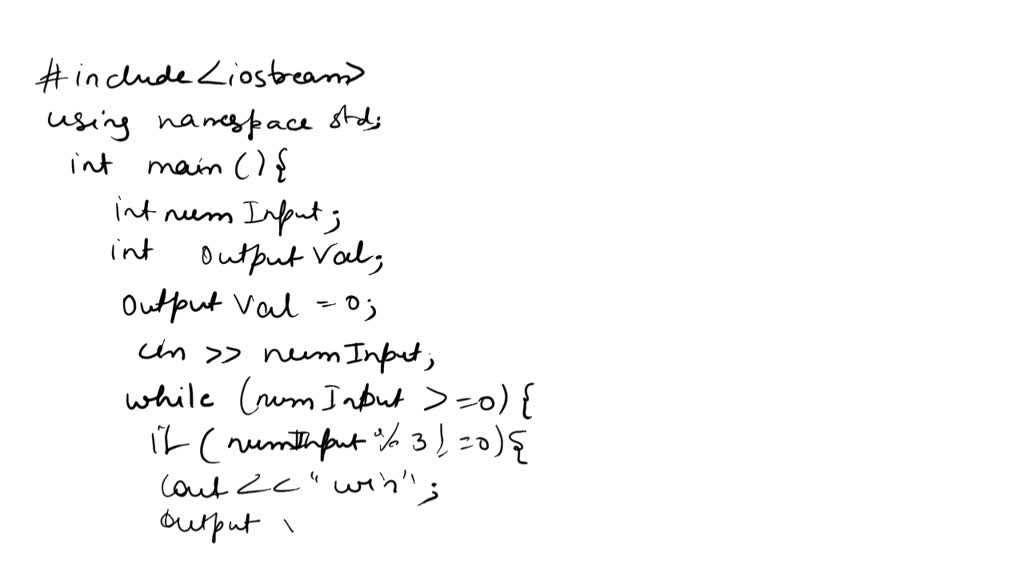 #include<iostream>
using namespace std;
int main(){
int numInput;
int outputVal;
outputVal = 0;
cin >> numInput;
while (numInput >=0){
if (numInput % 3 ! =0){
cout << "win";
output